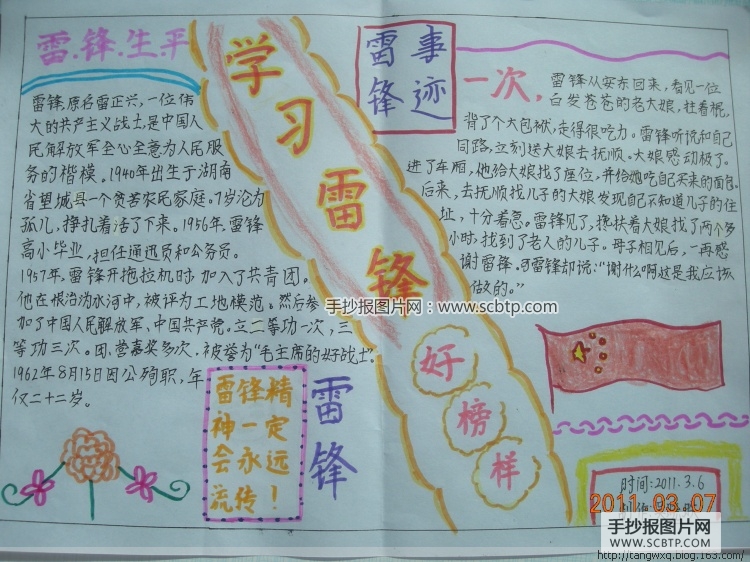 雷锋生平
雷锋,原名雷正兴,一位伟
大的共产主义战士,是中国人
民解放军全心全意为人民服
务的楷模。1940年出生于湖南
省望城县一个贫苦农民家庭。7岁沦为
孤儿,挣扎着活了下来。1956年,雷锋
高小毕业,担任通迅员和公务员。
1957年,雷锋开拖拉机时,加入了共青团。
他在根治沩水河中,被评为工地模范。然后参
加了中国人民解放军、中国共产党。立二等功一次,三
等功三次。团、营嘉奖多次,被誉为“毛主席的好战士”。
1962年8月15日因公殉职,年
仅二十二岁。
雷锋精
神一定
会永远
流传!
雷锋
学习雷锋
好榜样
雷锋
事迹
一次,
雷锋从安东回来,看见一位
白发苍苍的老大娘,拄着棍,
背了个大包袱,走得很吃力。雷锋听说和自己
同路,立刻送大娘去抚顺。大娘感动极了。
进了车厢,他给大娘找了座位,并给她吃自己买来的面包。
后来,去抚顺找儿子的大娘发现自己不知道儿子的住
址,十分着急。雷锋见了,搀扶着大娘找了两个多
小时,找到了老人的儿子。母子相见后,一再感
谢雷锋。可雷锋却说:“谢什么啊这是我应该
做的。”
手抄报图片网:www.scbtp.com
时间:2011.3.6
2011.03.07
手抄报图片网
WWW.SCBTP.COM
http://tangwxq.blog.163.com/